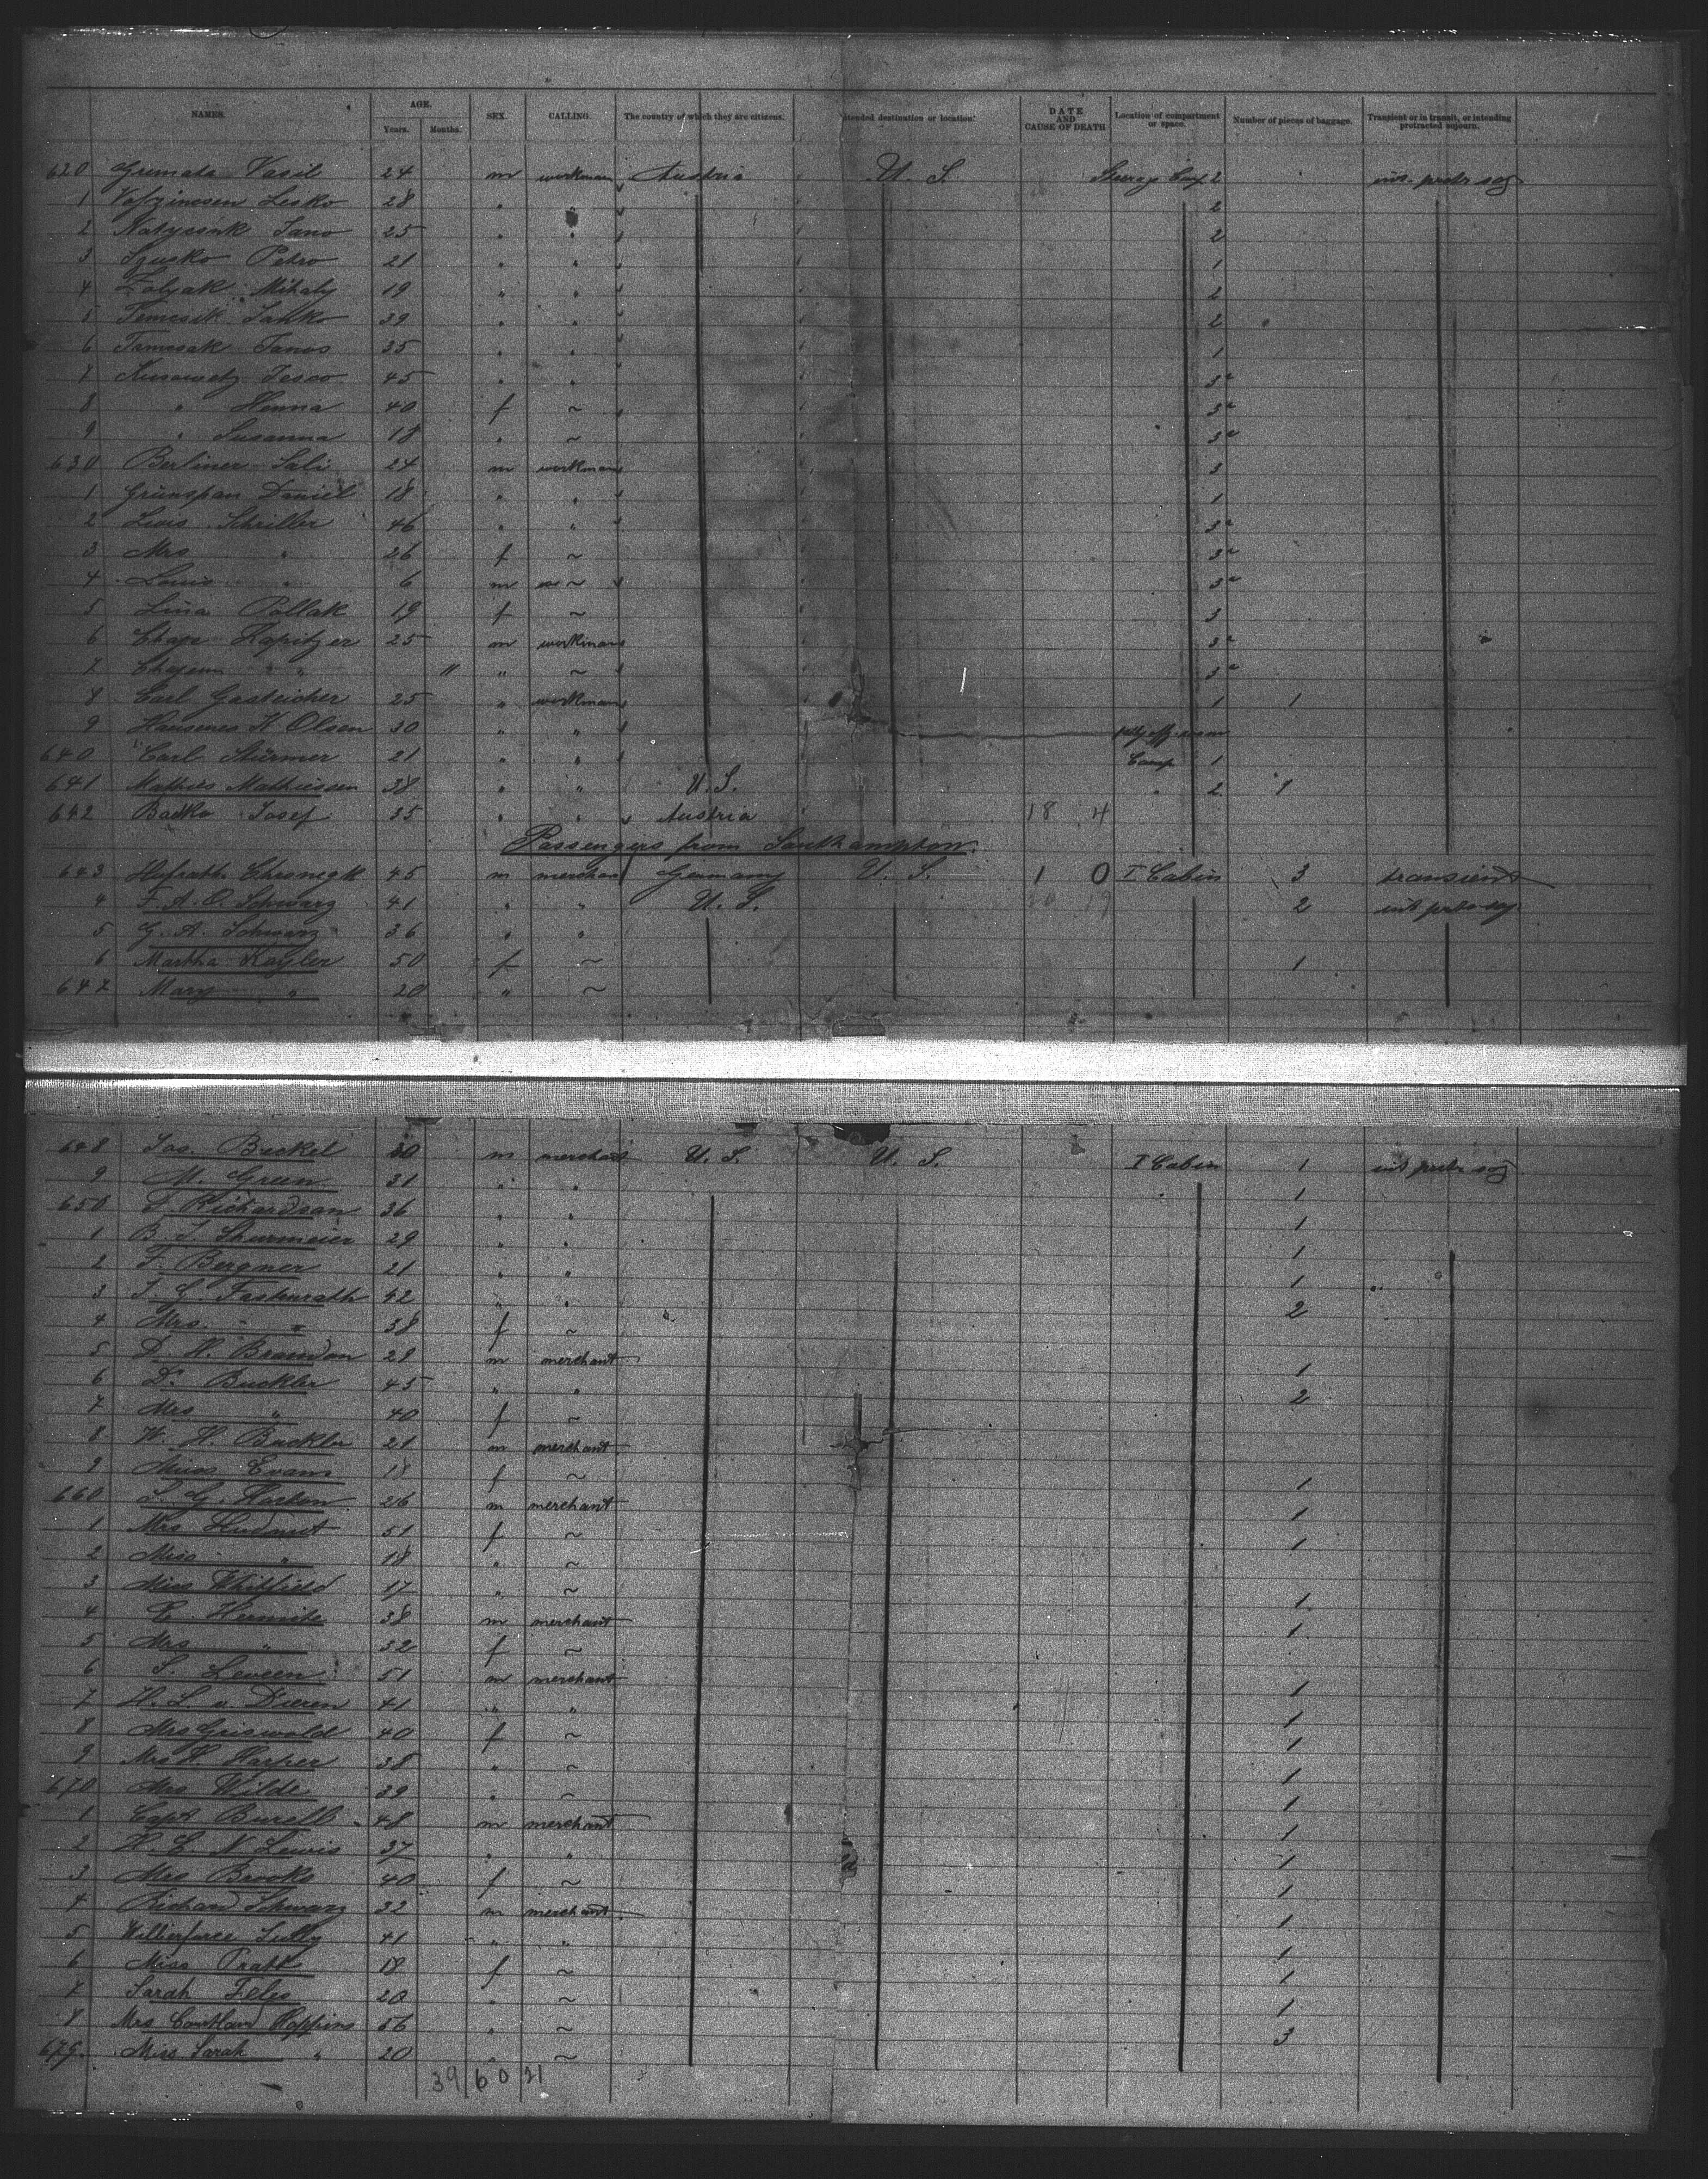 NAMES. AGE. Years. Months. SEX. CALLING. The country of which they are citizens. Intended destination or location. DATE AND CAUSE OF DEATH Location of compartment or space. Number of pieces of baggage. Transient or in transit, or intending protracted sojourn.
620 Vasil 24 m workman Austria U. S. Steerage Comp 2
1 Lesko 28 " " 2
2 Jano 25 " " 2
3 Petro 21 " " 1
4 Mihaly 19 " " 2
5 Temcsik Janko 39 " " 2
6 Tamcsak Janos 35 " " 1
7 45 " " 3a
8 " Henna 40 f ~ 3a
9 " Susanna 18 " ~ 3a
630 Berliner Sali 24 m workman 3
1 Grünspan Daniel 18 " " 1
2 Lewis Schriller 46 " " 3a
3 Mrs " 26 f ~ 3a
4 Louis " 6 m ~ 3a
5 Lina Pollak 19 f ~ 3
6 25 m workman 3a
7 " 11 " ~ 3a
8 Carl Gasteicher 25 " workman 1 1
9 K Olsen 30 " "
640 Carl Stürmer 21 " " Comp 1
641 Mathies Mathiesen 38 " " U. S. " 2 1
642 Badko Josef 35 " " Austria 18 4
Passengers from Southampton.
643 Hofrath Chronegk 45 m merchant Germany U. S. 1 0 I Cabin 3 transient
4 F. A. O. Schwarz 41 " " U. S. 20 19 2
5 G. A. Schwarz 36 " "
6 Martha Kayler 50 f ~ 1
647 Mary " 20 " ~
648 Jos. Bickel 30 m merchant U. S. U. S. I Cabin 1
9 M. Green 31 " " 1
650 T. Richardson 36 " " 1
1 B. J. Shurmeier 29 " " 1
2 F. Bergner 21 " " 1
3 J. G. Fastenrath 42 " " 2
4 Mrs. " " 38 f ~
5 D. H. Brandon 28 m merchant 1
6 Dr. Buckler 45 " " 2
7 Mrs " 40 f ~
8 W. H. Buckler 21 m merchant
9 Miss Evans 18 f ~ 1
660 26 m merchant 1
1 Mrs Hudnut 51 f ~ 1
2 Miss " 18 " ~
3 Miss Whitfield 17 " ~ 1
4 E. Hermite 38 m merchant 1
5 Mrs " 32 f ~
6 S. Leveen 51 m merchant 1
7 H. L. v. Dieren 41 " " 1
8 Mrs Griswold 40 f ~ 1
9 Mrs H. Harper 38 " ~ 1
670 Mrs Wilde 39 " ~ 1
1 Capt Burell 48 m merchant 1
2 H. C. N Lewis 37 " " 1
3 Mrs Brooks 40 f ~ 1
4 Richard Schwarz 32 m merchant 1
5 Wilberforce Sully 41 " " 1
6 Miss Pratt 18 f ~ 1
7 Sarah 20 " ~ 1
8 Mrs Courtland Hoppins 56 " ~ 3
679. Miss Sarah " 20 " ~
39 60 21